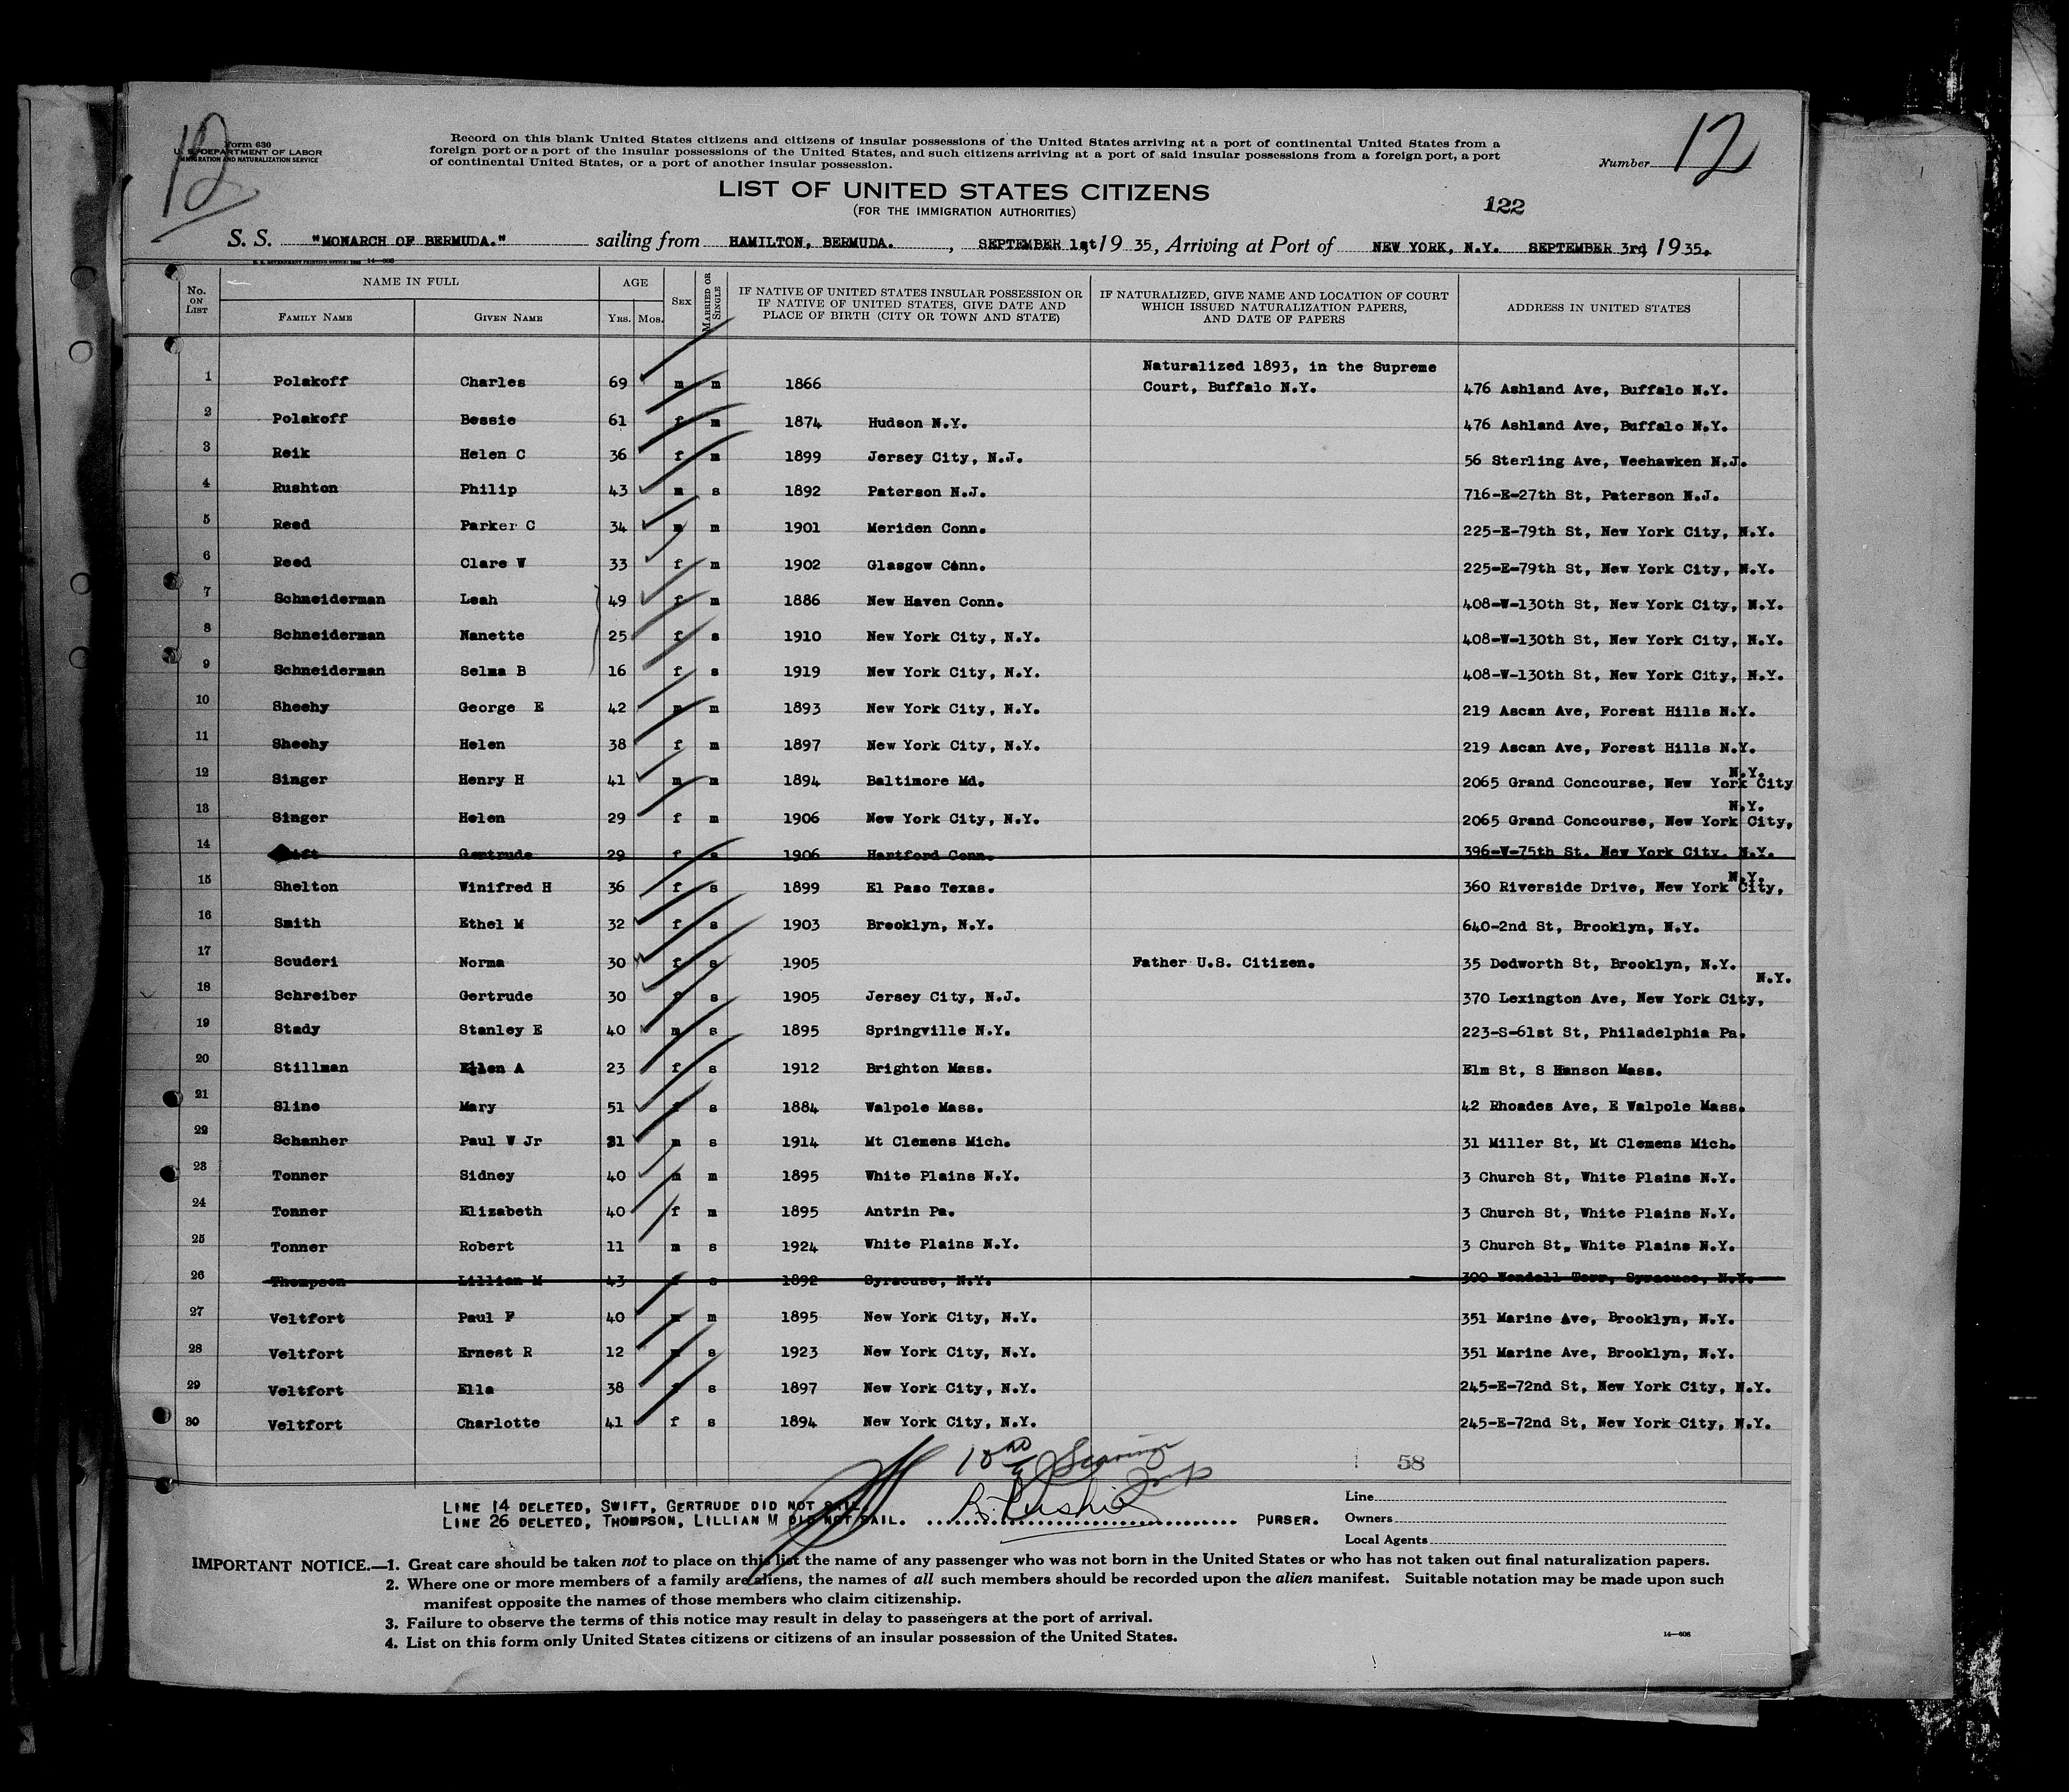 Form 630
U. S. DEPARTMENT OF LABOR
IMMIGRATION AND NATURALIZATION SERVICE
12
Record on this blank United States citizens and citizens of insular possessions of the United States arriving at a port of continental United States from a
foreign port or a port of the insular possessions of the United States, and such citizens arriving at a port of said insular possessions from a foreign port, a port
of continental United States, or a port of another insular possession.
Number 12
LIST OF UNITED STATES CITIZENS
(FOR THE IMMIGRATION AUTHORITIES)
122
S. S. "MONARCH OF BERMUDA." sailing from HAMILTON, BERMUDA. , SEPTEMBER 1st, 19 35, Arriving at Port of NEW YORK, N.Y. SEPTEMBER 3rd, 19 35.
No. ON LIST
NAME IN FULL
FAMILY NAME
GIVEN NAME
AGE
YRS. MOS.
SEX
MARRIED OR SINGLE
IF NATIVE OF UNITED STATES INSULAR POSSESSION OR
IF NATIVE OF UNITED STATES, GIVE DATE AND
PLACE OF BIRTH (CITY OR TOWN AND STATE)
IF NATURALIZED, GIVE NAME AND LOCATION OF COURT
WHICH ISSUED NATURALIZATION PAPERS,
AND DATE OF PAPERS
ADDRESS IN UNITED STATES
1 Polakoff Charles 69 m m 1866 Naturalized 1893, in the Supreme
Court, Buffalo N.Y. 476 Ashland Ave, Buffalo N.Y.
2 Polakoff Bessie 61 f m 1874 Hudson N.Y. 476 Ashland Ave, Buffalo N.Y.
3 Reik Helen C 36 f m 1899 Jersey City, N.J. 56 Sterling Ave, Weehawken N.J.
4 Rushton Philip 43 m s 1892 Paterson N.J. 716-E-27th St, Paterson N.J.
5 Reed Parker C 34 m m 1901 Meriden Conn. 225-E-79th St, New York City, N.Y.
6 Reed Clare W 33 f m 1902 Glasgow Conn. 225-E-79th St, New York City, N.Y.
7 Schneiderman Leah 49 f m 1886 New Haven Conn. 408-W-130th St, New York City, N.Y.
8 Schneiderman Nanette 25 f s 1910 New York City, N.Y. 408-W-130th St, New York City, N.Y.
9 Schneiderman Selma B 16 f s 1919 New York City, N.Y. 408-W-130th St, New York City, N.Y.
10 Sheehy George E 42 m m 1893 New York City, N.Y. 219 Ascan Ave, Forest Hills N.Y.
11 Sheehy Helen 38 f m 1897 New York City, N.Y. 219 Ascan Ave, Forest Hills N.Y.
12 Singer Henry H 41 m m 1894 Baltimore Md. 2065 Grand Concourse, New York City N.Y.
13 Singer Helen 29 f m 1906 New York City, N.Y. 2065 Grand Concourse, New York City, N.Y.
14 Swift Gertrude 29 f s 1906 Hartford Conn. 396-W-75th St. New York City. N.Y.
15 Shelton Winifred H 36 f s 1899 El Paso Texas. 360 Riverside Drive, New York City, N.Y.
16 Smith Ethel M 32 f s 1903 Brooklyn, N.Y. 640-2nd St, Brooklyn, N.Y.
17 Scuderi Norma 30 f s 1905 Father U.S. Citizen. 35 Dodworth St, Brooklyn, N.Y.
18 Schreiber Gertrude 30 f s 1905 Jersey City, N.J. 370 Lexington Ave, New York City, N.Y.
19 Stady Stanley E 40 m s 1895 Springville N.Y. 223-S-61st St, Philadelphia Pa.
20 Stillman Ellen A 23 f s 1912 Brighton Mass. Elm St, S Hanson Mass.
21 Sline Mary 51 f s 1884 Walpole Mass. 42 Rhoades Ave, E Walpole Mass.
22 Schanher Paul W Jr 21 m s 1914 Mt Clemens Mich. 31 Miller St, Mt Clemens Mich.
23 Tonner Sidney 40 m m 1895 White Plains N.Y. 3 Church St, White Plains N.Y.
24 Tonner Elizabeth 40 f m 1895 Antrin Pa. 3 Church St, White Plains N.Y.
25 Tonner Robert 11 m s 1924 White Plains N.Y. 3 Church St, White Plains N.Y.
26 Thompson Lillian M 43 f s 1892 Syracuse, N.Y. 300 Wendell Terr, Syracuse, N.Y.
27 Veltfort Paul F 40 m m 1895 New York City, N.Y. 351 Marine Ave, Brooklyn, N.Y.
28 Veltfort Ernest R 12 m s 1923 New York City, N.Y. 351 Marine Ave, Brooklyn, N.Y.
29 Veltfort Ella 38 f s 1897 New York City, N.Y. 245-E-72nd St, New York City, N.Y.
30 Veltfort Charlotte 41 f s 1894 New York City, N.Y. 245-E-72nd St, New York City, N.Y.
58
LINE 14 DELETED, SWIFT, GERTRUDE DID NOT SAIL.
LINE 26 DELETED, THOMPSON, LILLIAN M DID NOT SAIL. PURSER.
Line
Owners
Local Agents
IMPORTANT NOTICE.—1. Great care should be taken not to place on this list the name of any passenger who was not born in the United States or who has not taken out final naturalization papers.
2. Where one or more members of a family are aliens, the names of all such members should be recorded upon the alien manifest. Suitable notation may be made upon such
manifest opposite the names of those members who claim citizenship.
3. Failure to observe the terms of this notice may result in delay to passengers at the port of arrival.
4. List on this form only United States citizens or citizens of an insular possession of the United States.
14—606